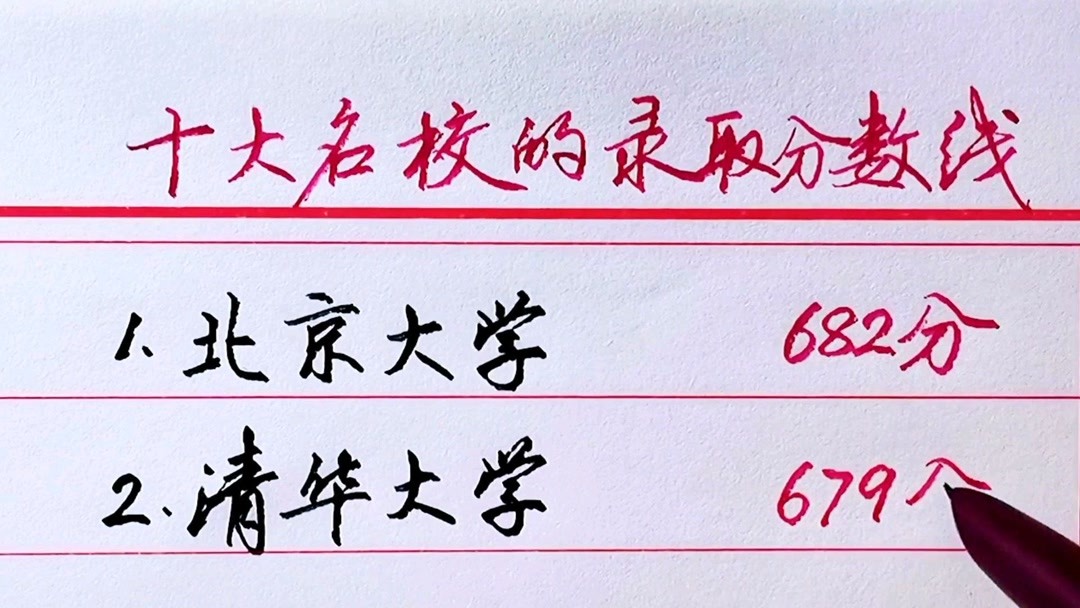 十大名校的录取分数线
1. 北京大学 682分
2. 清华大学 679八